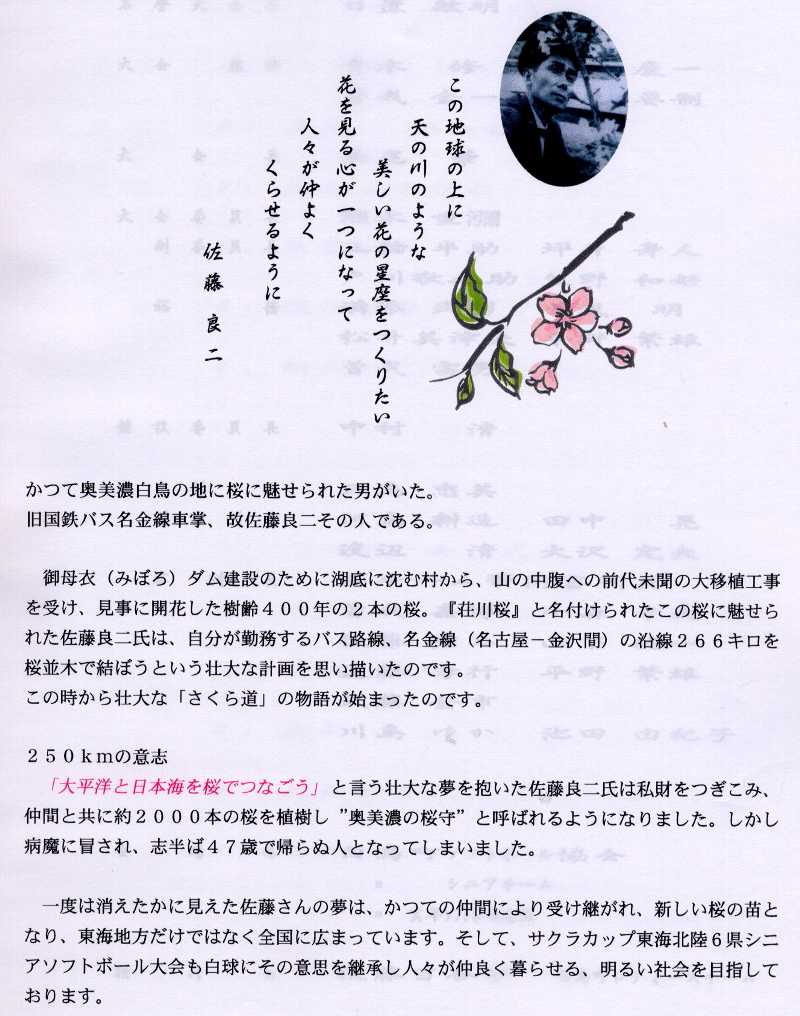 この地球の上に
天の川のような
美しい花の星座をつくりたい
花を見る心が一つになって
人々が仲よく
くらせるように
佐藤良二
かつて奥美濃白鳥の地に桜に魅せられた男がいた。
旧国鉄バス名金線車掌、故佐藤良二その人である。
御母衣（みぼろ）ダム建設のために湖底に沈む村から、山の中腹への前代未聞の大移植工事
を受け、見事に開花した樹齢４００年の２本の桜。『荘川桜』と名付けられたこの桜に魅せら
れた佐藤良二氏は、自分が勤務するバス路線、名金線（名古屋－金沢間）の沿線２６６キロを
桜並木で結ぼうという壮大な計画を思い描いたのです。
この時から壮大な「さくら道」の物語が始まったのです。
２５０ｋｍの意志
「大平洋と日本海を桜でつなごう」と言う壮大な夢を抱いた佐藤良二氏は私財をつぎこみ、
仲間と共に約２０００本の桜を植樹し ”奥美濃の桜守” と呼ばれるようになりました。しかし
病魔に冒され、志半ば４７歳で帰らぬ人となってしまいました。
一度は消えたかに見えた佐藤さんの夢は、かつての仲間により受け継がれ、新しい桜の苗と
なり、東海地方だけではなく全国に広まっています。そして、サクラカップ東海北陸６県シニ
アソフトボール大会も白球にその意思を継承し人々が仲良く暮らせる、明るい社会を目指して
おります。